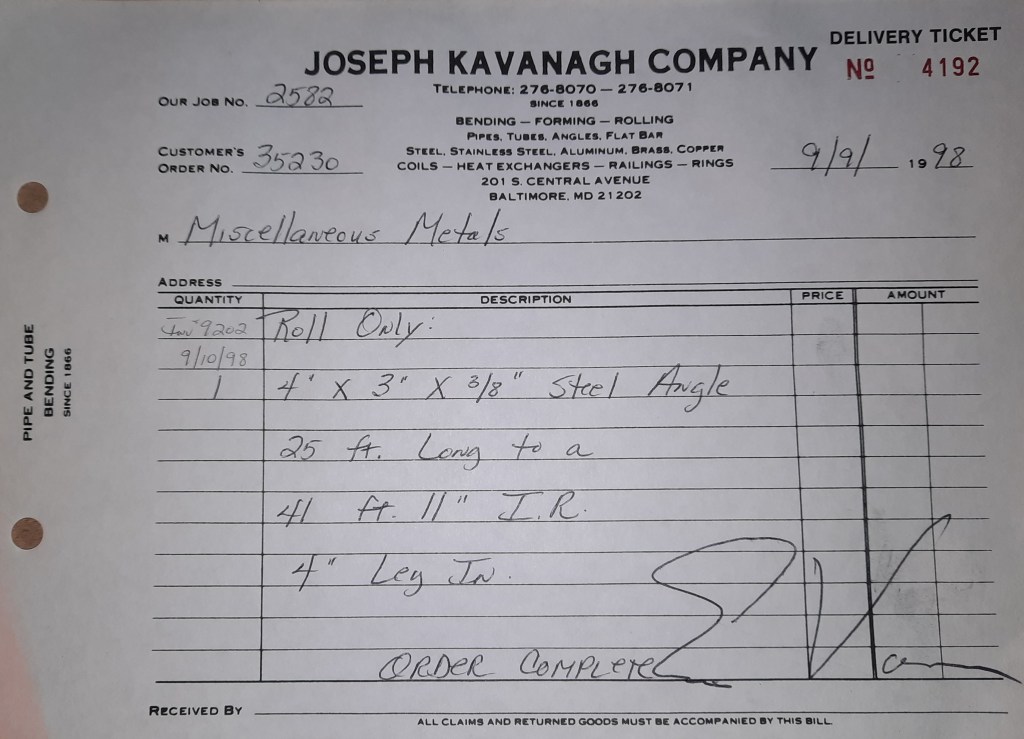 DELIVERY TICKET
JOSEPH KAVANAGH COMPANY
Nº 4192
TELEPHONE: 276-8070 — 276-8071
SINCE 1866
OUR JOB NO. 2582
BENDING — FORMING — ROLLING
PIPES, TUBES, ANGLES, FLAT BAR
CUSTOMER'S
ORDER NO. 35230
STEEL, STAINLESS STEEL, ALUMINUM, BRASS, COPPER
COILS — HEAT EXCHANGERS — RAILINGS — RINGS
9/9/ 1998
201 S. CENTRAL AVENUE
BALTIMORE, MD 21202
M Miscellaneous Metals
ADDRESS
QUANTITY DESCRIPTION PRICE AMOUNT
Inv# 9202 Roll Only:
9/10/98
1 4" X 3" X 3/8" Steel Angle
25 ft. Long to a
41 ft. 11" I.R.
4" Leg In.
ORDER COMPLETE
RECEIVED BY
ALL CLAIMS AND RETURNED GOODS MUST BE ACCOMPANIED BY THIS BILL
PIPE AND TUBE
BENDING
SINCE 1866